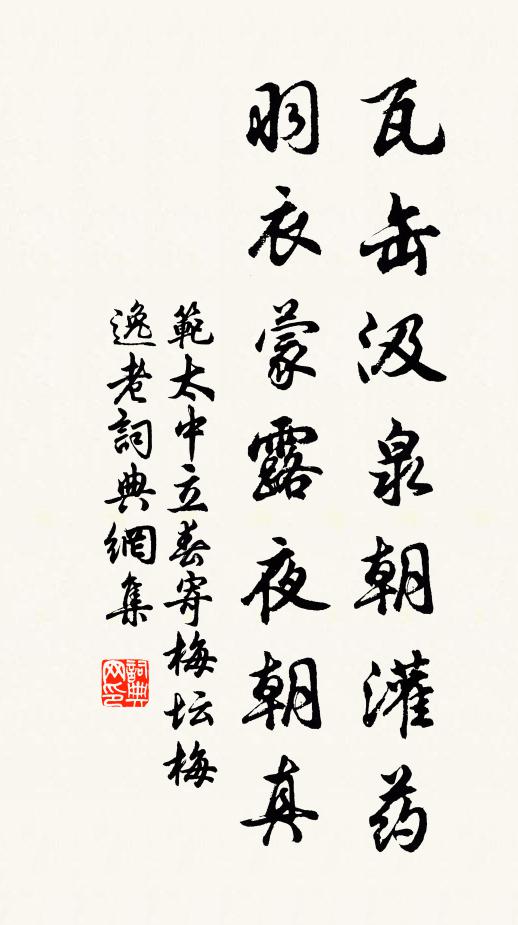 瓦缶汲泉朝灌药
羽衣蒙露夜朝真
範太中立春寄梅坛梅
逸老詞典網集
詞典网印